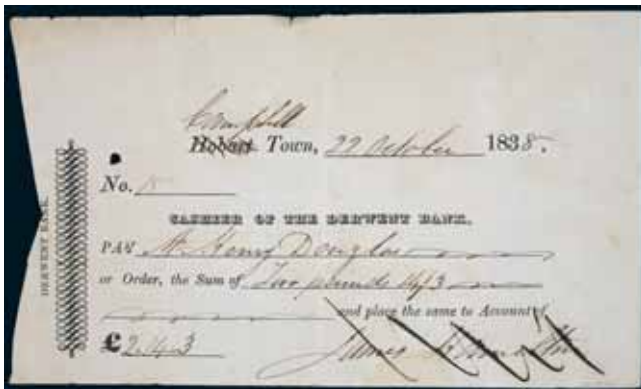 Campbell
Hobart Town, 22 October 1838.
No.
CASHIER OF THE DERWENT BANK,
PAY Mr Henry Douglas
or Order, the Sum of Two pounds 4/3
and place the same to Account of
£ 2.4.3
James
DERWENT BANK.